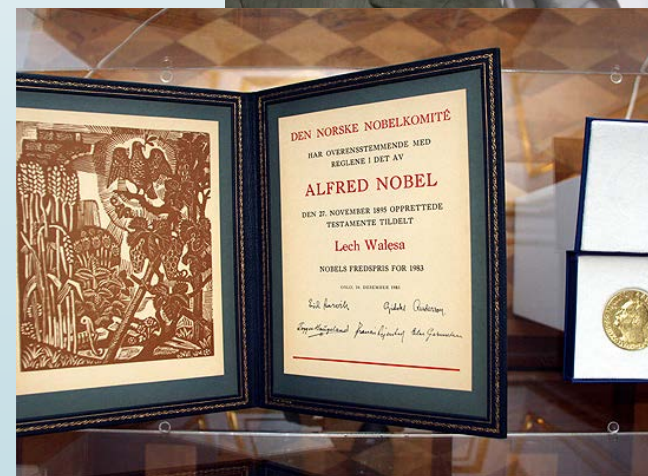 DEN NORSKE NOBELKOMITÉ
HAR OVERENSSTEMMENDE MED
REGLENE I DET AV
ALFRED NOBEL
DEN 27. NOVEMBER 1895 OPPRETTEDE
TESTAMENTE TILDELT
Lech Wałęsa
NOBELS FREDSPRIS FOR 1983
OSLO, 10. DESEMBER 1983